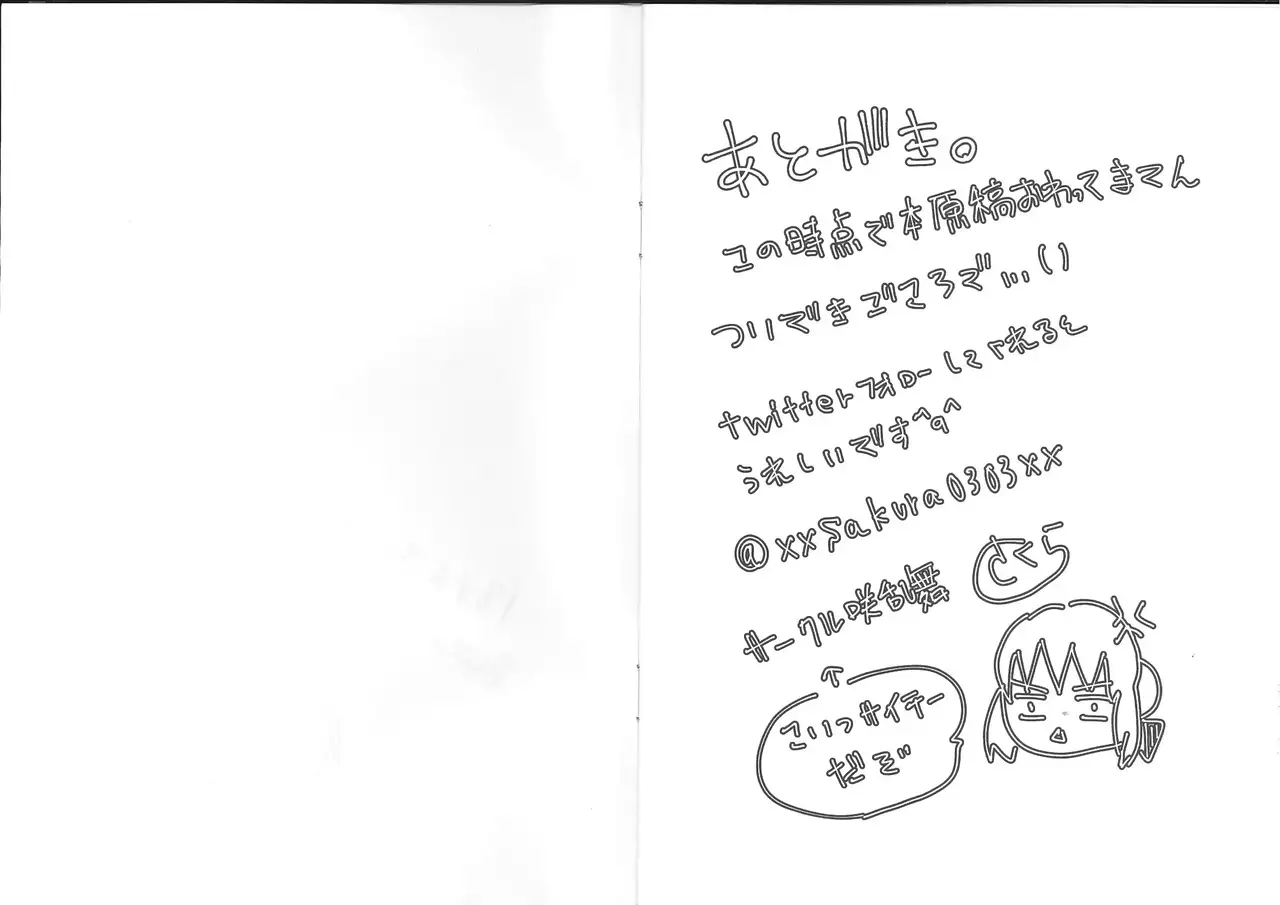 あとがき。
この時点で本原稿おわってません
ついできごころで…()
twitterフォローしてくれると
うれしいです^q^
@xxSakura0303xx
サークル咲乱舞
さくら
↑
こいつサイテー
だぞ